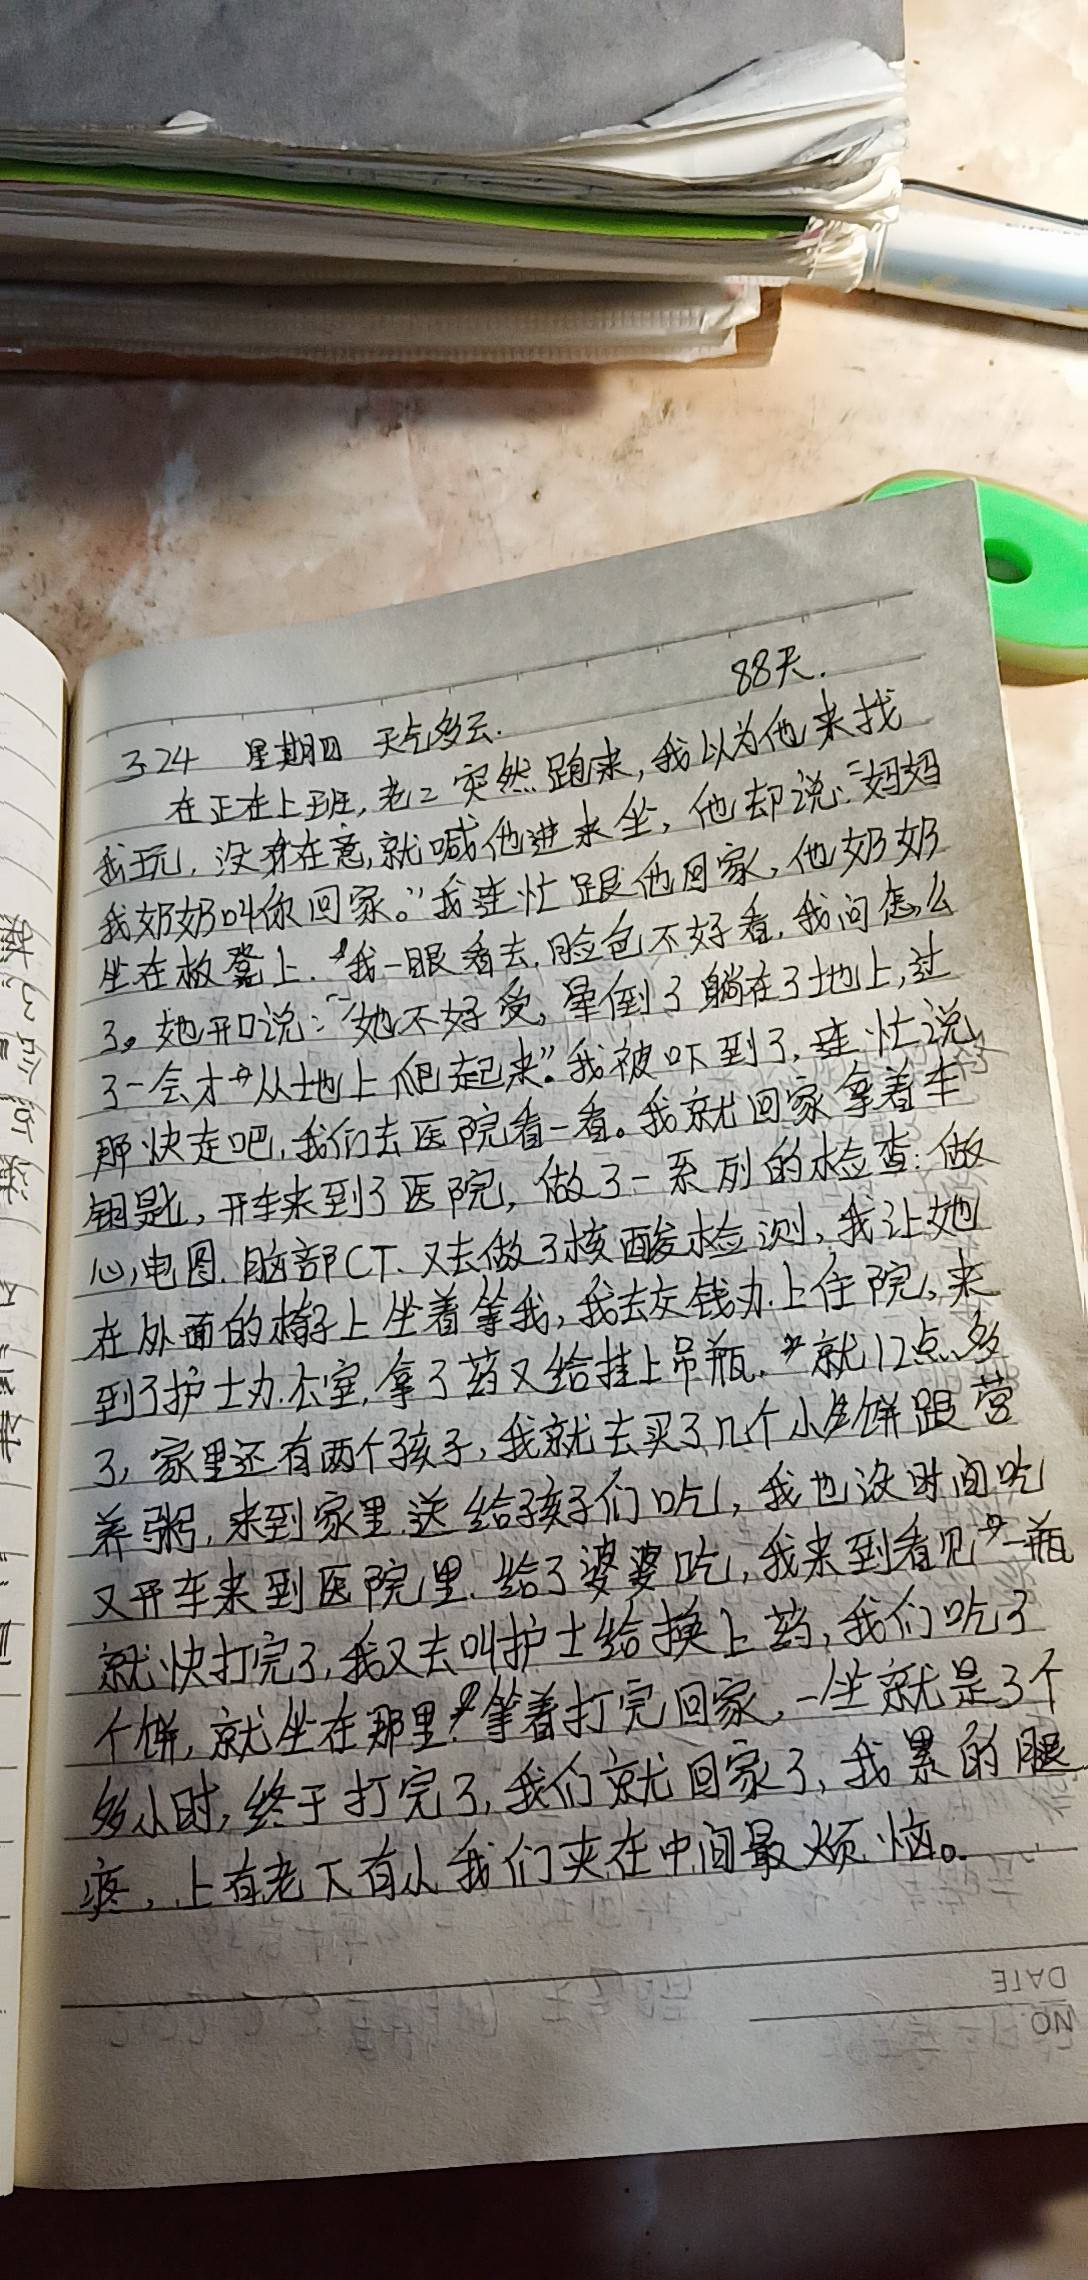 88天.
3.24 星期四 天气多云.
在正在上班,老二突然跑来,我以为他来找
我玩,没有在意,就喊他进来坐,他却说:“妈妈
我奶奶叫你回家。”我连忙跟他回家,他奶奶
坐在板凳上.我一眼看去,脸色不好看,我问怎么
了。她开口说:“她不好受,晕倒了躺在了地上,过
了一会才从地上爬起来”。我被吓到了,连忙说
那快走吧,我们去医院看一看。我就回家拿着车
钥匙,开车来到了医院,做了一系列的检查:做
心电图.脑部CT、又去做了核酸检测,我让她
在外面的椅子上坐着等我,我去交钱办上住院,来
到了护士办公室,拿了药又给挂上吊瓶.就12点多
了,家里还有两个孩子,我就去买了几个小饼跟营
养粥,来到家里送给孩子们吃,我也没时间吃
又开车来到医院里.给了婆婆吃,我来到看见一瓶
就快打完了,我又去叫护士给换上药,我们吃了
个饼,就坐在那里等着打完回家,一坐就是3个
多小时,终于打完了,我们就回家了,我累的腿
疼,上有老下有从我们夹在中间最烦恼。
DATE
NO.